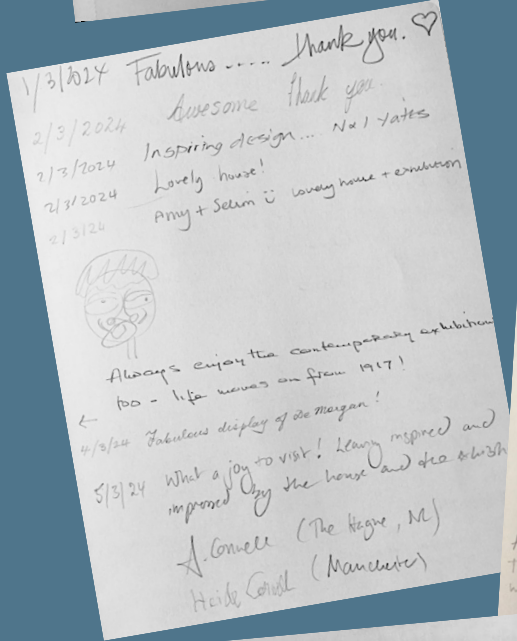 1/3/2024 Fabulous ..... Thank you. ♡
2/3/2024 Awesome Thank you.
2/3/2024 Inspiring design... N & I Yates
2/3/2024 Lovely house!
2/3/24 Amy + Selim ü Lovely house + exhibition
Always enjoy the contemporary exhibition
too - life moves on from 1917!
←
4/3/24 Fabulous display of De Morgan!
5/3/24 What a joy to visit! Leaving inspired and
impressed by the house and the exhibition
(The Hague, NL)
(Manchester)